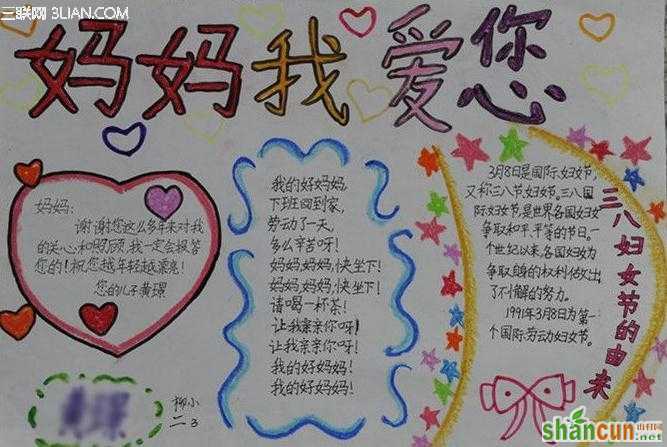 三联网 3LIAN.COM
妈妈我爱您
妈妈:
谢谢您这么多年来对我
的关心和照顾,我一定会报答
您的!祝您越年轻越漂亮!
您的儿子黄璟
我的好妈妈,
下班回到家,
劳动了一天,
多么辛苦呀!
妈妈,妈妈,快坐下!
妈妈,妈妈,快坐下!
请喝一杯茶!
让我亲亲你呀!
让我亲亲你呀!
我的好妈妈!
我的好妈妈!
3月8日是国际妇女节,
又称三八节妇女节,三八国
际妇女节,是世界各国妇女
争取和平、平等的节日。一
个世纪以来,各国妇女为
争取自身的权利做出
了不懈的努力。
1991年3月8日为第一
个国际劳动妇女节。
三八妇女节的由来
柳小
二3
shancun
山村网
.net